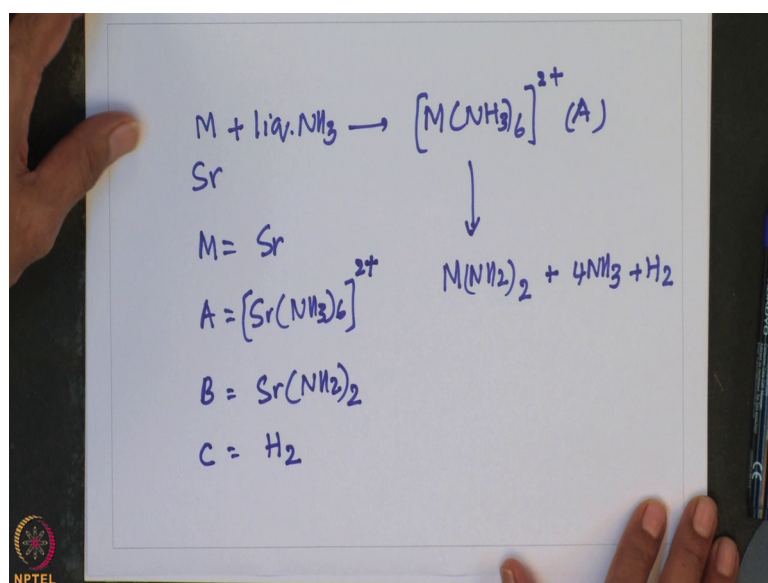 M + liq. NH3 → [M(NH3)6]2+ (A)
Sr
M = Sr
M(NH2)2 + 4NH3 + H2
A = [Sr(NH3)6]2+
B = Sr(NH2)2
C = H2
NPTEL